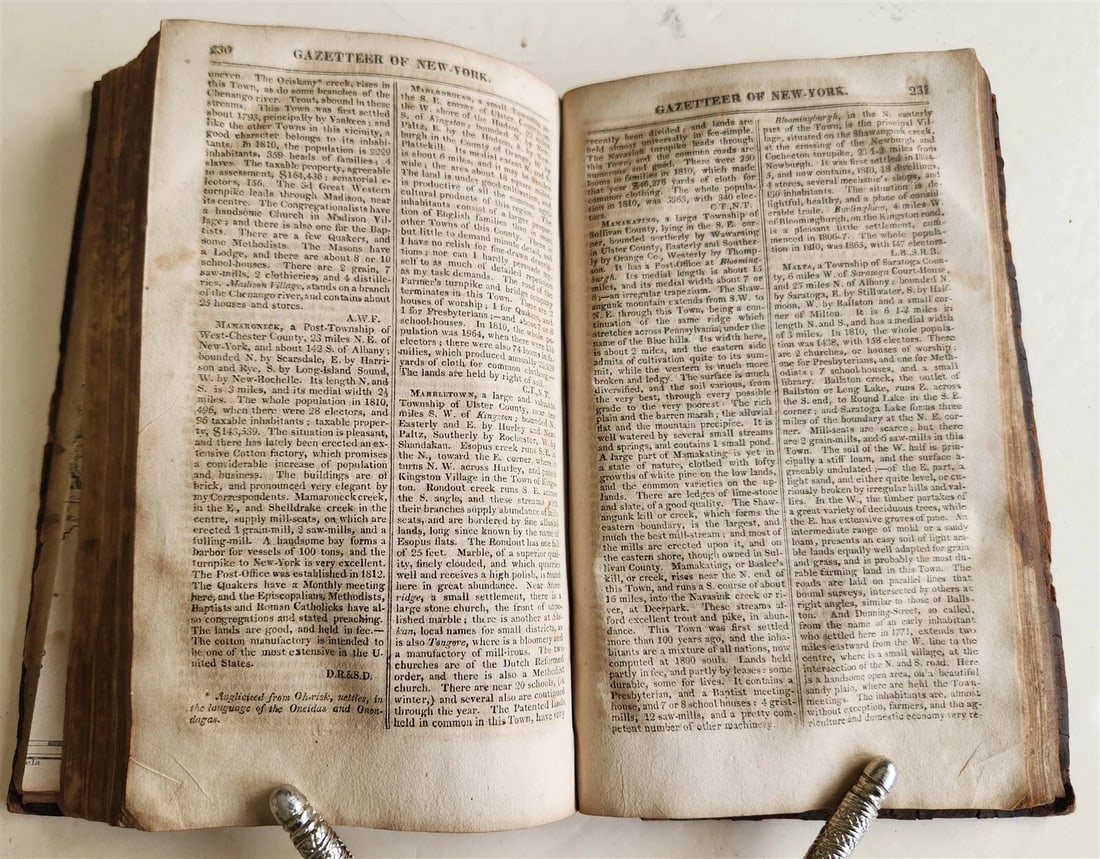 230
GAZETTEER OF NEW-YORK.
uneven. The Oriskany* creek, rises in
this Town, as do some branches of the
Chenango river. Trout, abound in these
streams. This Town was first settled
about 1793, principally by Yankees; and
like the other Towns in this vicinity, a
good character belongs to its inhabi-
tants. In 1810, the population is 2229
inhabitants, 359 heads of families; 4
slaves. The taxable property, agreeable
to assessment, $164,436; senatorial e-
lectors, 156. The 3d Great Western
turnpike leads through Madison, near
its centre. The Congregationalists have
a handsome Church in Madison Vil-
lage; and there is also one for the Bap-
tists. There are a few Quakers, and
some Methodists. The Masons have
a Lodge, and there are about 8 or 10
school-houses. There are 2 grain, 7
saw-mills, 2 clothieries, and 4 distille-
ries. Madison Village, stands on a branch
of the Chenango river, and contains about
25 houses and stores.
A.W.F.
MAMARONECK, a Post-Township of
West-Chester County, 23 miles N. E. of
New-York, and about 142 S. of Albany:
bounded N. by Scarsdale, E. by Harri-
son and Rye, S. by Long-Island Sound,
W. by New-Rochelle. Its length N. and
S. is 3 miles, and its medial width 2½
miles. The whole population in 1810,
496, when there were 28 electors, and
96 taxable inhabitants; taxable proper-
ty, $143,539. The situation is pleasant,
and there has lately been erected an ex-
tensive Cotton factory, which promises
a considerable increase of population
and business. The buildings are of
brick, and pronounced very elegant by
my Correspondents. Mamaroneck creek,
in the E., and Shelldrake creek in the
centre, supply mill-seats, on which are
erected 1 grain-mill, 2 saw-mills, and a
fulling-mill. A handsome bay forms a
harbor for vessels of 100 tons, and the
turnpike to New-York is very excellent.
The Post-Office was established in 1812.
The Quakers have a Monthly meeting
here, and the Episcopalians, Methodists,
Baptists and Roman Catholicks have al-
so congregations and stated preaching.
The lands are good, and held in fee.—
The cotton manufactory is intended to
be one of the most extensive in the U-
nited States.
D.R.&S.D.
* Anglicised from Oh-risk, nettles, in
the language of the Oneidas and Onon-
dagas.
MARLBOROUGH, a small Town
the S. E. corner of Ulster County, on
the W. shore of the Hudson, 23 miles
S. of Kingston; bounded N. by New
Paltz, E. by the Hudson, S. by
burgh in the County of Orange, W. by
Plattekill. Its medial extent N. and S.
is about 6 miles, and may be
wide; the area about 18 square miles.
The land is under good cultivation, and
is productive of all the common agri-
cultural products of this region. The
inhabitants consist of a large propor-
tion of English families than the
other Towns of this County. There is
but little to demand minute descrip-
tions; nor can I hardly persuade my-
self to as much of detailed repetition
as my task demands. The road of the
Farmer's turnpike and bridge company
terminates in this Town. There are 2
houses of worship; 1 for Quakers, and
1 for Presbyterians;—and about 7 or 8
school-houses. In 1810, the whole po-
pulation was 1964, when there were
electors; there were also 74 looms in fa-
milies, which produced annually
yards of cloth for common clothing.—
The lands are held by right of soil.
C.T., N.T.
MARBLETOWN, a large and valuable
Township of Ulster County, near
miles S. W. of Kingston; bounded N.
Easterly and E. by Hurley and New
Paltz, Southerly by Rochester, W. by
Shandaken. Esopus creek runs S. E.
the N., toward the E. corner, when it
turns N. W. across Hurley, and
Kingston Village in the Town of Kings-
ton. Rondout creek runs S. E. across
the S. angle, and these streams with
their branches supply abundance of mill-
seats, and are bordered by fine alluvial
lands, long since known by the name of
Esopus flats. The Rondout has one fall
of 25 feet. Marble, of a superior qual-
ity, finely clouded, and which quarries
well and receives a high polish, is found
here in great abundance. Near Stone-
ridge, a small settlement, there is a
large stone church, the front of unpo-
lished marble; there is another at Sho-
kan, local names for small districts, as
is also Tongore, where is a bloomery and
a manufactory of mill-irons. The two
churches are of the Dutch Reformed
order, and there is also a Methodist
church. There are near 20 schools, (in
winter,) and several also are continued
through the year. The Patented lands,
held in common in this Town, have very
GAZETTEER OF NEW-YORK.
231
recently been divided, and lands are
held almost universally in fee-simple.
The Navasink turnpike leads through
this Town, and the common roads are
numerous and good. There were 250
looms in families in 1810, which made
that year 240,276 yards of cloth for
common clothing. The whole popula-
tion in 1810, was 3363, with 340 elec-
tors.
C.T., N.T.
MAMAKATING, a large Township of
Sullivan County, lying in the S. E. cor-
ner, bounded northerly by Wawarning
in Ulster County, Easterly and Souther-
ly by Orange Co., Westerly by Thomp-
son. It has a Post-Office at Blooming-
burgh. Its medial length is about 15
miles, and its medial width about 7 or
8;—an irregular trapezium. The Shaw-
angunk mountain extends from S.W. to
N. E. through this Town, being a con-
tinuation of the same ridge which
stretches across Pennsylvania, under the
name of the Blue hills. Its width here,
is about 2 miles, and the eastern side
admits of cultivation quite to its sum-
mit, while the western is much more
broken and ledgy. The surface is much
diversified, and the soil various, from
the very best, through every possible
grade to the very poorest: The rich
plain and the barren marsh; the alluvial
flat and the mountain precipice. It is
well watered by several small streams
and springs, and contains 1 small pond.
A large part of Mamakating is yet in
a state of nature, clothed with lofty
growths of white pine on the low lands,
and the common varieties on the up-
lands. There are ledges of lime-stone
and slate, of a good quality. The Shaw-
angunk kill or creek, which forms the
eastern boundary, is the largest, and
much the best mill-stream; and most of
the mills are erected upon it, and on
the eastern shore, though owned in Sul-
livan County. Mamakating, or Basler's
kill, or creek, rises near the N. end of
this Town, and runs a S. course of about
16 miles, into the Navasink creek or ri-
ver, at Deerpark. These streams af-
ford excellent trout and pike, in abun-
dance. This Town was first settled
more than 100 years ago, and the inha-
bitants are a mixture of all nations, now
computed at 1800 souls. Lands held
partly in fee, and partly by leases: some
durable, some for lives. It contains a
Presbyterian, and a Baptist meeting-
house, and 7 or 8 school-houses: 4 grist-
mills, 12 saw-mills, and a pretty com-
petent number of other machinery.
Bloomingburgh, in the N. easterly
part of the Town, is the principal Vil-
lage, situated on the Shawangunk creek,
at the crossing of the Newburgh and
Cochecton turnpike, 23 1-2 miles from
Newburgh. It was first settled in 1804,
and now contains, 1810, 18 dwellings,
4 stores, several mechanic's shops, and
130 inhabitants. The situation is de-
lightful, healthy, and a place of consid-
erable trade. Burlingham, 4 miles W.
of Bloomingburgh, on the Kingston road,
is a pleasant little settlement, com-
menced in 1806-7. The whole popula-
tion in 1810, was 1865, with 147 electors.
L.B., S.R.B.
MALTA, a Township of Saratoga Coun-
ty, 6 miles W. of Saratoga Court-House,
and 25 miles N. of Albany: bounded N.
by Saratoga, E. by Stillwater, S. by Half-
moon, W. by Ballston and a small cor-
ner of Milton. It is 6 1-2 miles in
length N. and S., and has a medial width
of 3 miles. In 1810, the whole popula-
tion was 1438, with 158 electors. There
are 2 churches, or houses of worship:
one for Presbyterians, and one for Meth-
odists: 7 school-houses, and a small
library. Ballston creek, the outlet of
Ballston or Long Lake, runs E. across
the S. end, to Round Lake in the S. E.
corner; and Saratoga Lake forms three
miles of the boundary at the N. E. cor-
ner. Mill-seats are scarce; but there
are 2 grain-mills, and 6 saw-mills in this
Town. The soil of the W. half is prin-
cipally a stiff loam, and the surface a-
greeably undulated;—of the E. part, a
light sand, and either quite level, or cu-
riously broken by irregular hills and val-
lies. In the W., the timber partakes of
a great variety of deciduous trees, while
the E. has extensive groves of pine. An
intermediate range of mold or a sandy
loam, presents an easy soil of light ara-
ble lands equally well adapted for grain
and grass, and is probably the most du-
rable farming land in this Town. The
roads are laid on parallel lines that
bound surveys, intersected by others at
right angles, similar to those of Balls-
ton. And Dunning-Street, so called,
from the name of an early inhabitant
who settled here in 1771, extends two
miles eastward from the W. line to the
centre, where is a small village, at the
intersection of the N. and S. road. Here
is a handsome open area, on a beautiful
sandy plain, where are held the Town-
meetings. The inhabitants are, almost
without exception, farmers, and the ag-
riculture and domestic economy very re-